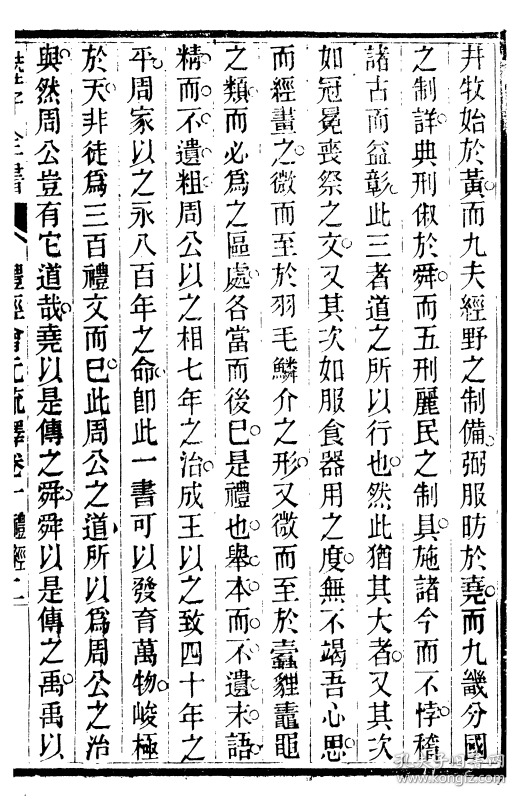 井牧始於黃而九夫經野之制備弼服昉於堯而九畿分國
之制詳典刑俶於舜而五刑麗民之制具施諸今而不悖稽
諸古而益彰此三者道之所以行也然此猶其大者又其次
如冠冕喪祭之文又其次如服食器用之度無不竭吾心思
而經畫之微而至於羽毛鱗介之形又微而至於蠧貍鼃黽
之類而必爲之區處各當而後已是禮也舉本而不遺末語
精而不遺粗周公以之相七年之治成王以之致四十年之
平周家以之永八百年之命卽此一書可以發育萬物峻極
於天非徒爲三百禮文而已此周公之道所以爲周公之治
與然周公豈有它道哉堯以是傳之舜舜以是傳之禹禹以
全書 禮經會元疏釋卷一禮經 二
孔夫子旧书网